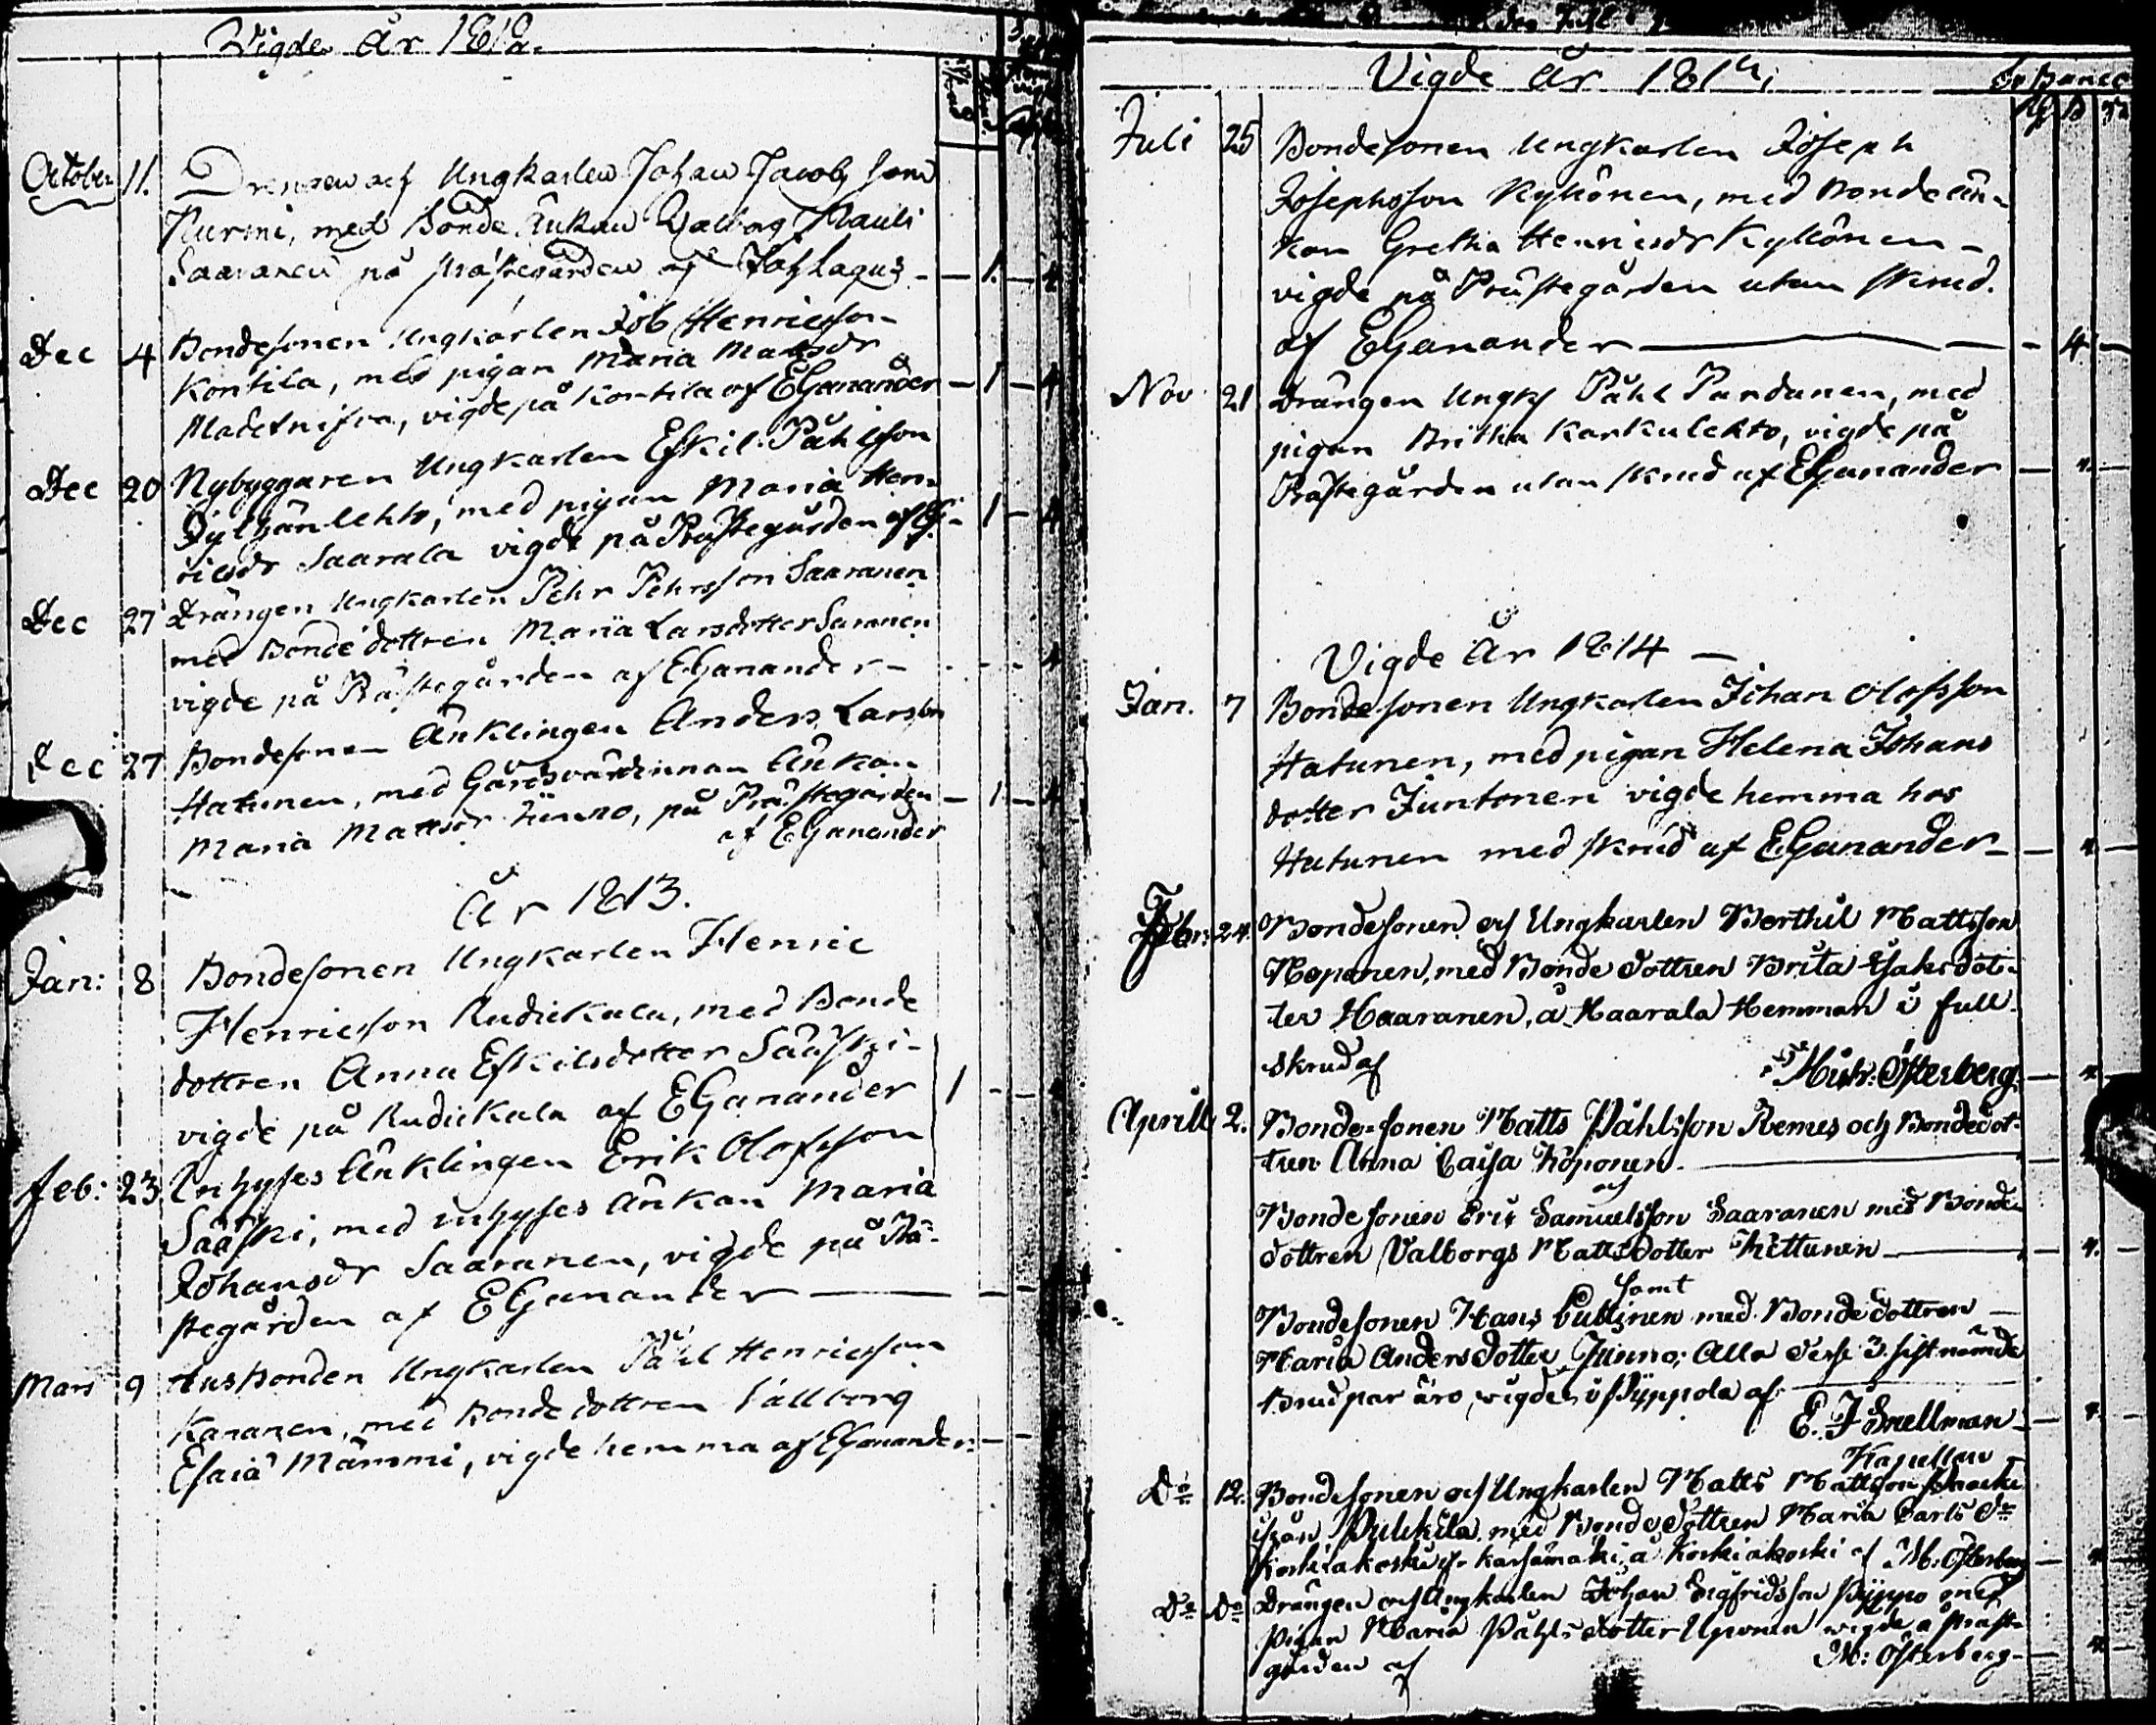 Vigde År 1812.
October 11. Drengen och Ungkarlen Johan Jacobsson
Nurmi, med Bonde Änkan Valborg Mauli
Saaranen på Prästegården af Joh Lagus - 1. - 4
Dec 4 Bondesonen Ungkarlen Job Henricsson
Kontila, med pigan Maria Mattsdr
Madetnifva, vigde på Kontila af EGanander - 1 - 4
Dec 20 Nybyggaren Ungkarlen Eskil Påhlsson
lehto, med pigan Maria Hen-
ricsdr Saarala vigde på Prästegården af EG - 1 - 4
Dec 27 Drängen Ungkarlen Pehr Pehrsson Saaranen
med Bonde dottren Maria Larsdotter Saranen
vigde på Prästegården af EGanander - 4
Dec 27 Bondesonen Änklingen Anders Larsson
Hatunen, med Gårdsvärdinnan Änkan
Maria Mattsdr Junno, på Prästegården - 1 - 4
af EGanander
År 1813.
Jan: 8 Bondesonen Ungkarlen Henric
Henricsson Rudickala, med Bonde
dottren Anna Eskilsdotter Sääski-
vigde på Rudickala af EGanander 1 -
feb: 23 Inhyses Änklingen Erik Olofsson
Sääski, med inhyses Änkan Maria
Johansdr Saaranen, vigde på Prä-
stegården af EGanander
Mars 9 Husbonden Ungkarlen Påhl Henricsson
Karanen, med Bonde dottren Vallborg
Esaiæ Mämmi, vigde hemma af EGanander
Vigde år 181
Juli 25 Bondesonen Ungkarlen Joseph
Josephsson Kykönen, med Bonde än-
kan Gretha Henricsdr Kykönen -
vigde på Prästegården utan skrud.
af EGanander - 4 -
Nov 21 Drängen Ungk Påhl Pardanen, med
pigan Britha Karkulehto, vigde på
Prästegården utan skrud af EGanander - 4 -
Vigde År 1814 -
Jan. 7 Bondesonen Ungkarlen Johan Olofsson
Hatunen, med pigan Helena Johans
dotter Juntonen vigde hemma hos
Hatunen med skrud af EGanander - 4 -
Febr: 24. Bondesonen och Ungkarlen Berthil Mattsson
Koponen, med Bonde dottren Brita Isaks dot-
ter Haaranen, å Haarala Hemman i full
skrud af Österberg. - 4 -
Aprill 2. Bonde-sonen Matts Påhlsson Remes och Bondedot-
tren Anna Caisa Koponen.
och
Bondesonen Eric Samuelsson Saaranen med Bonde-
dottren Valborgs Matts dotter Kettunen - 4. -
samt
Bondesonen Hans med Bonde dottren
Maria Anders dotter Junno; Alla desse 3 sistnämde
Brudpar äro wigde i Pyppola af
E. J Snellman - 4 -
Kapellan
Do 12. Bondesonen och Ungkarlen Matts Mattsson
ifrån Pulkila med Bonde dottren Maria Carls Dr
Koskiakoski ifr Karsämäki å Koskiakoski af M: Österberg - 4
Do Do Drängen och Ungkarlen Johan Sigfridsson Pyppo med
Pigan Maria Påhls dotter Uponen wigde å Präst-
gården af M: Österberg - 4